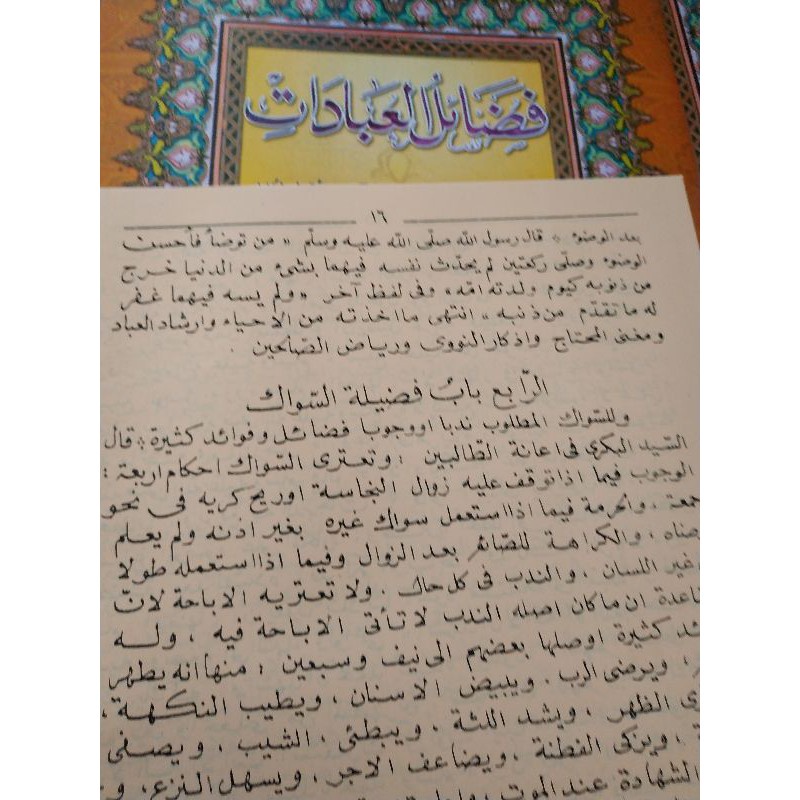 فضائل العبادات
١٦
بعد الوضوء * قال رسول الله صلى الله عليه وسلم « من توضأ فأحسن
الوضوء وصلى ركعتين لم يحدّث نفسه فيهما بشىء من الدنيا خرج
من ذنوبه كيوم ولدته امّه » وفى لفظ آخر « ولم يسه فيهما غفر
له ما تقدّم من ذنبه » انتهى ما اخذته من الاحياء وارشاد العباد
ومغنى المحتاج واذكار النووى ورياض الصّالحين .
الرّابع باب فضيلة السّواك
وللسّواك المطلوب ندبا او وجوبا فضائل وفوائد كثيرة * قال
السّيد البكرى فى اعانة الطّالبين : وتعترى السّواك احكام اربعة :
الوجوب فيما اذا توقف عليه زوال النجاسة اوريح كريه فى نحو
جمعة ، والحرمة فيما اذا استعمل سواك غيره بغير اذنه ولم يعلم
رضاه ، والكراهة للصّائم بعد الزوال وفيما اذا استعمله طولا
غير اللسان ، والندب فى كل حال . ولا تعتريه الاباحة لانّ
قاعدة ان ما كان اصله الندب لا تأتى الاباحة فيه ، وله
ئد كثيرة اوصلها بعضهم الى نيف وسبعين ، منها انه يطهر
، ويرضى الرب . ويبيض الاسنان ، ويطيب النكهة ،
ى الظهر ، ويشد اللثة ، ويبطئ الشيب ، ويصفى
، ويزكى الفطنة ، ويضاعف الاجر ، ويسهل النزع ،
الشهادة عند الموت ،